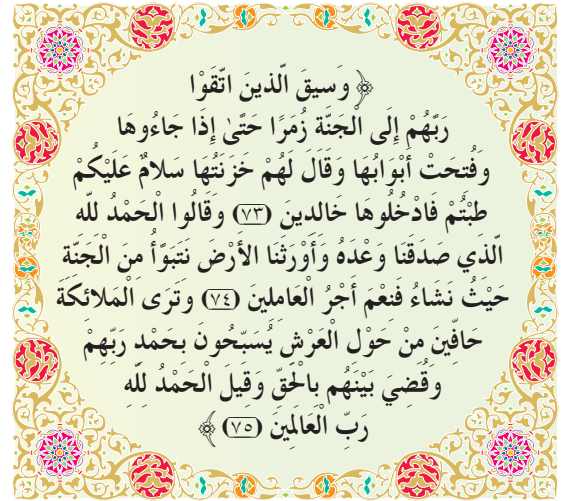 ﴿ وَسيقَ الّذينَ اتّقَوْا
رَبّهُمْ إِلَى الْجَنّة زُمَرًا حَتّىٰ إِذَا جَاءُوهَا
وَفُتحَتْ أَبْوَابُهَا وَقَالَ لَهُمْ خَزَنَتُهَا سَلامٌ عَلَيْكُمْ
طبْتُمْ فَادْخُلُوهَا خَالدينَ (٧٣) وَقَالُوا الْحَمْدُ للّه
الّذي صَدَقَنَا وَعْدَهُ وَأَوْرَثَنَا الأرْضَ نَتَبَوّأُ منَ الْجَنّة
حَيْثُ نَشَاءُ فَنعْمَ أَجْرُ الْعَاملينَ (٧٤) وَتَرَى الْمَلائكَةَ
حَافّينَ منْ حَوْل الْعَرْش يُسَبّحُونَ بحَمْد رَبّهِمْ
وَقُضيَ بَيْنَهُم بالْحَقّ وَقيلَ الْحَمْدُ للّهِ
رَبّ الْعَالَمِينَ (٧٥) ﴾